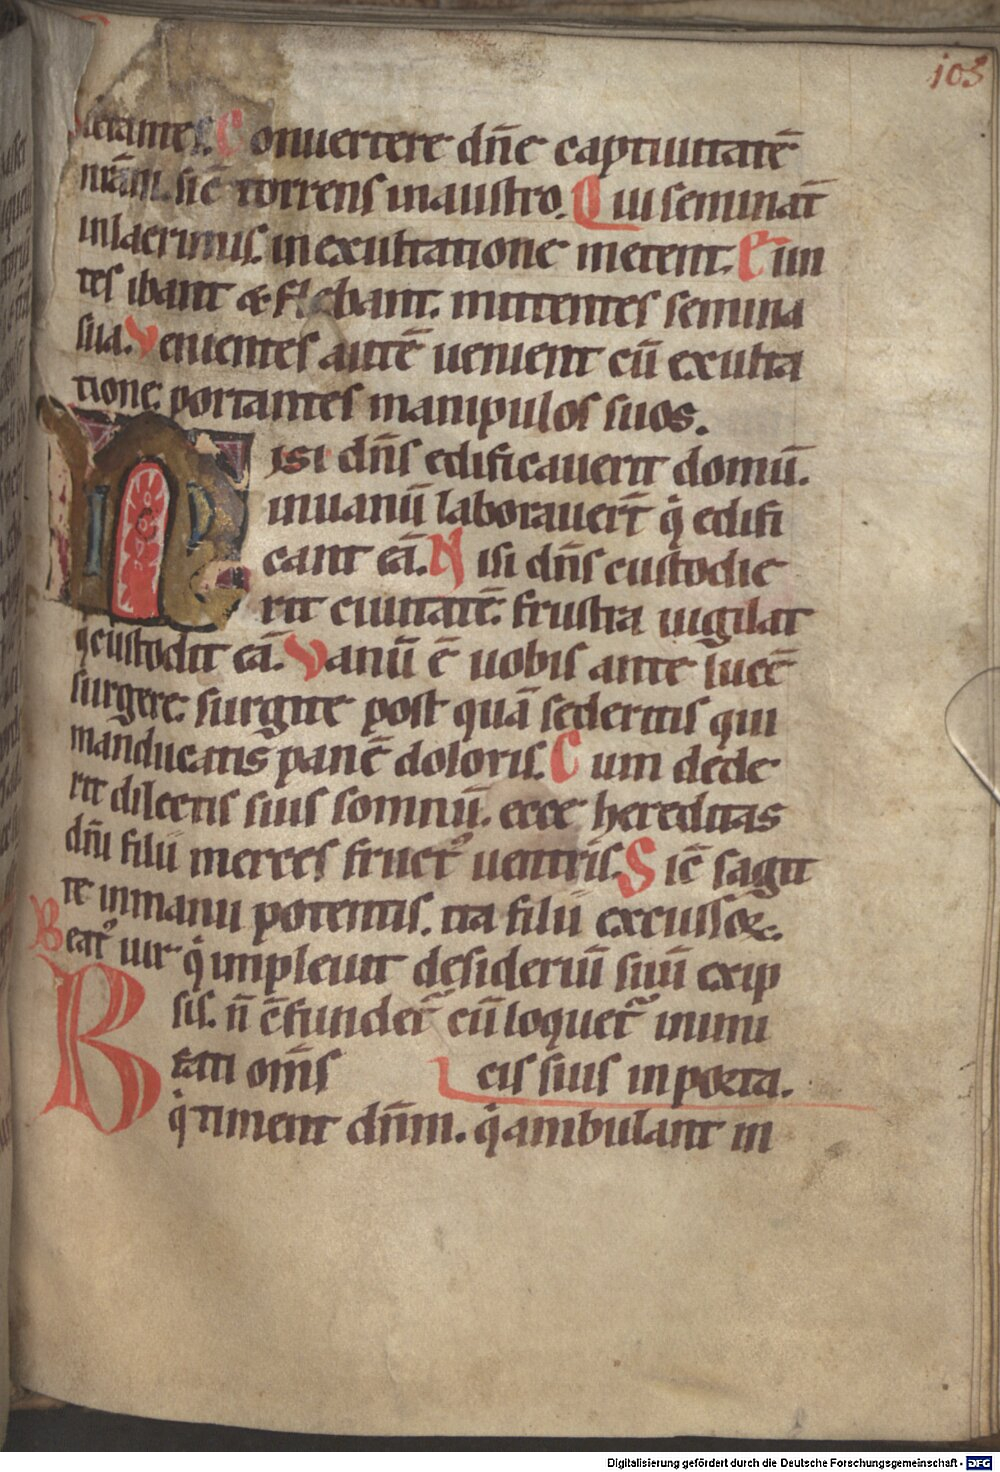 103
letantes. Conuertere dn̄e captiuitatē
nr̄am. sic̄ torrens in austro. Qui seminan̄t
in lacrimis. in exultatione metent. Eun
tes ibant & flebant. mittentes semina
sua. Venientes autē uenient cū exulta
tione: portantes manipulos suos.
Nisi dn̄s edificauerit domū.
in uanū laborauer̄t q̇ edifi
cant eā. Nisi dn̄s custodie
rit ciuitatē: frustra uigilat
q custodit eā. Vanū ē uobis ante lucē
surgere: surgite post quā sederitis qui
manducatis panē doloris. Cum dede
rit dilectis suis somnū. ecce hereditas
dn̄i filii merces fruct᾿ uentris. Sic̄ sagit
te in manu potentis. ita filii excussoꝝ.
Beat᾿ uir q̇ impleuit desideriū suū ex ip
sis. n̄ c̄fundet᷑ cū loquet᷑ inimi
Beati om̄s cis suis in porta.
q̇ timent dn̄m. q̇ ambulant in
Digitalisierung gefördert durch die Deutsche Forschungsgemeinschaft - DFG